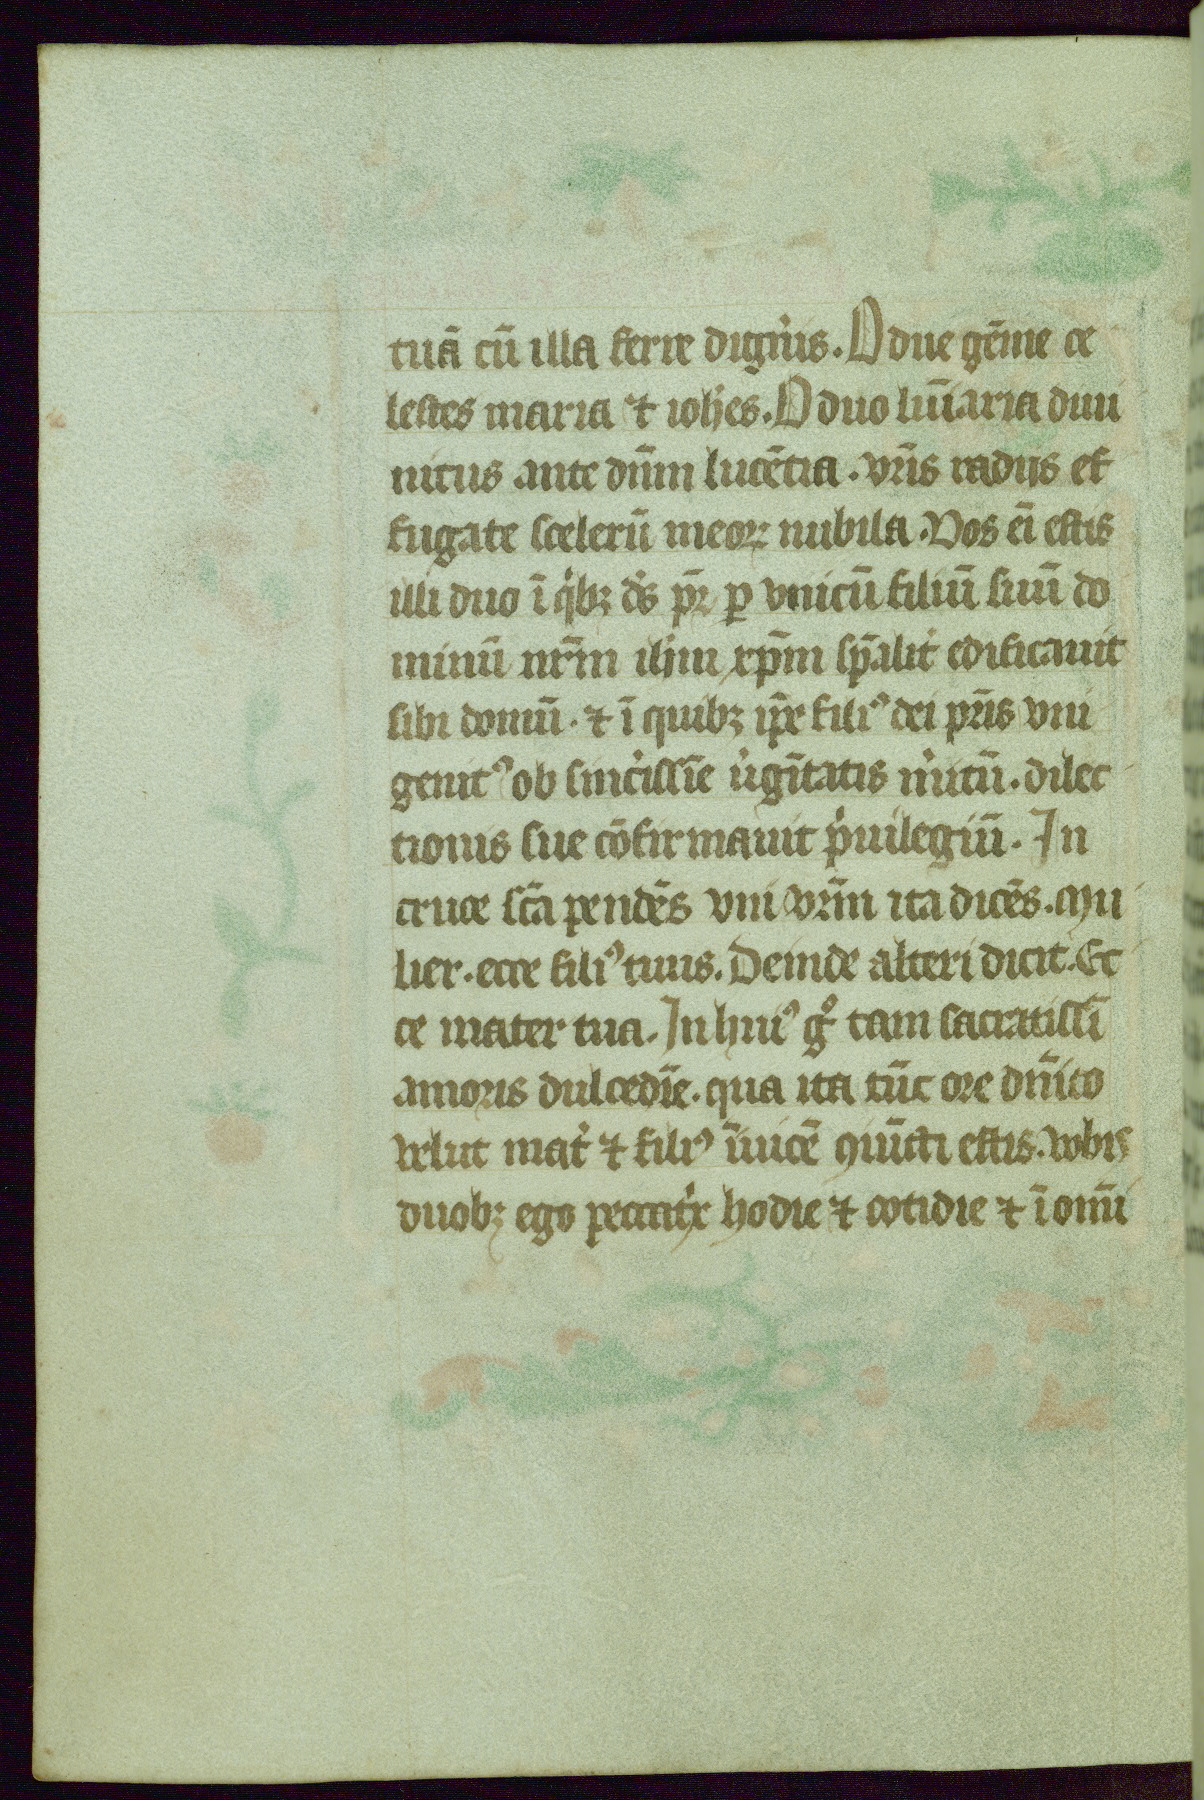 tuā cū illa ferre dign̾is. O due gēme ce
lestes maria ⁊ ioh̄es. O duo lūīaria diui
nitus ante dn̄m lucētia. vr̄is radijs ef
fugate scelerū meoꝝ nubila. Vos eī estis
illi duo ī qͥbꝫ dˢ pr̄ ꝑ vnicū filiū suū do
minū nr̄m ih̄m xp̄m sp̄alit̾ edificauit
sibi domū. ⁊ ī quibꝫ ip̄e filiꝰ dei pr̄is vni
genitꝰ ob sinc̾issīe v̾gītatis m̾itū. dilec
tionis sue cōfirmauit pͥuilegiū. In
cruce sc̄a pendēs vni vr̄m ita dicēs. Mu
lier. ecce filiꝰ tuus. Deinde alteri dicit. Ec
ce mater tua. In huiꝰ gͦ tam sacratissī
amoris dulcedīe. qua ita tūc ore dn̄ico
velut mat̾ ⁊ filiꝰ īuicē ꝯiūcti estis. vobis
duobꝫ ego peccatͥx hodie ⁊ cotidie ⁊ ī om̄i